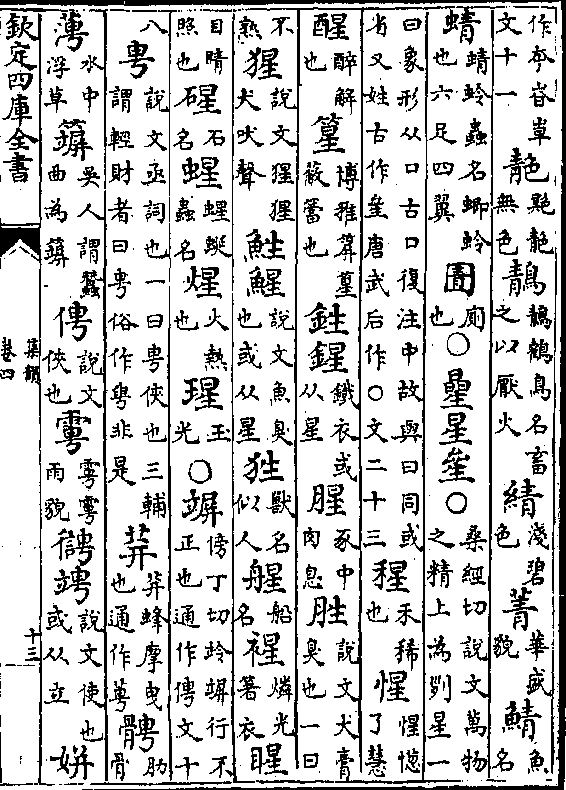 欽定四庫全書
作𡴀峇𡴎文十一 靘 艴靘無色 鶄 鶄鶴鳥名畜之以厭火 綪 淺碧色 菁 華盛貌 鯖 魚名
蜻 蜻蛉蟲名蝍蛉也六足四翼 圊 廁也 ○ 曐星𤯓〇 桑經切說文萬物之精上為列星一
曰象形从口古口復注中故與日同或省又姓古作𤯓唐武后作〇文二十三 䅣 禾稀也 惺 惺憁了慧
醒 醉解也 篂 博雅箳篂蔽簹也 鉎鍟 鐵衣或从星 腥 豕中肉息 胜 說文犬膏臭也一曰
不熟 猩 說文猩猩犬吠聲 鮏鯹 說文魚臭也或从星 狌 獸名似人 䑆 船名 燐光著衣 睲
目睛照也 石名 蟲名 煋 火熱也 瑆 玉光 ○ 竮 傍丁切跉竮行不正也通作俜文十
八 甹 說文亟詞也一曰甹俠也三輔謂輕財者曰甹俗作𢌳非是 荓 荓蜂摩曳也通作甹 肋骨
水中浮草 吳人謂蠶曲為 俜 說文俠也 雨貌 說文使也或从立 姘
集韻
卷四
十三